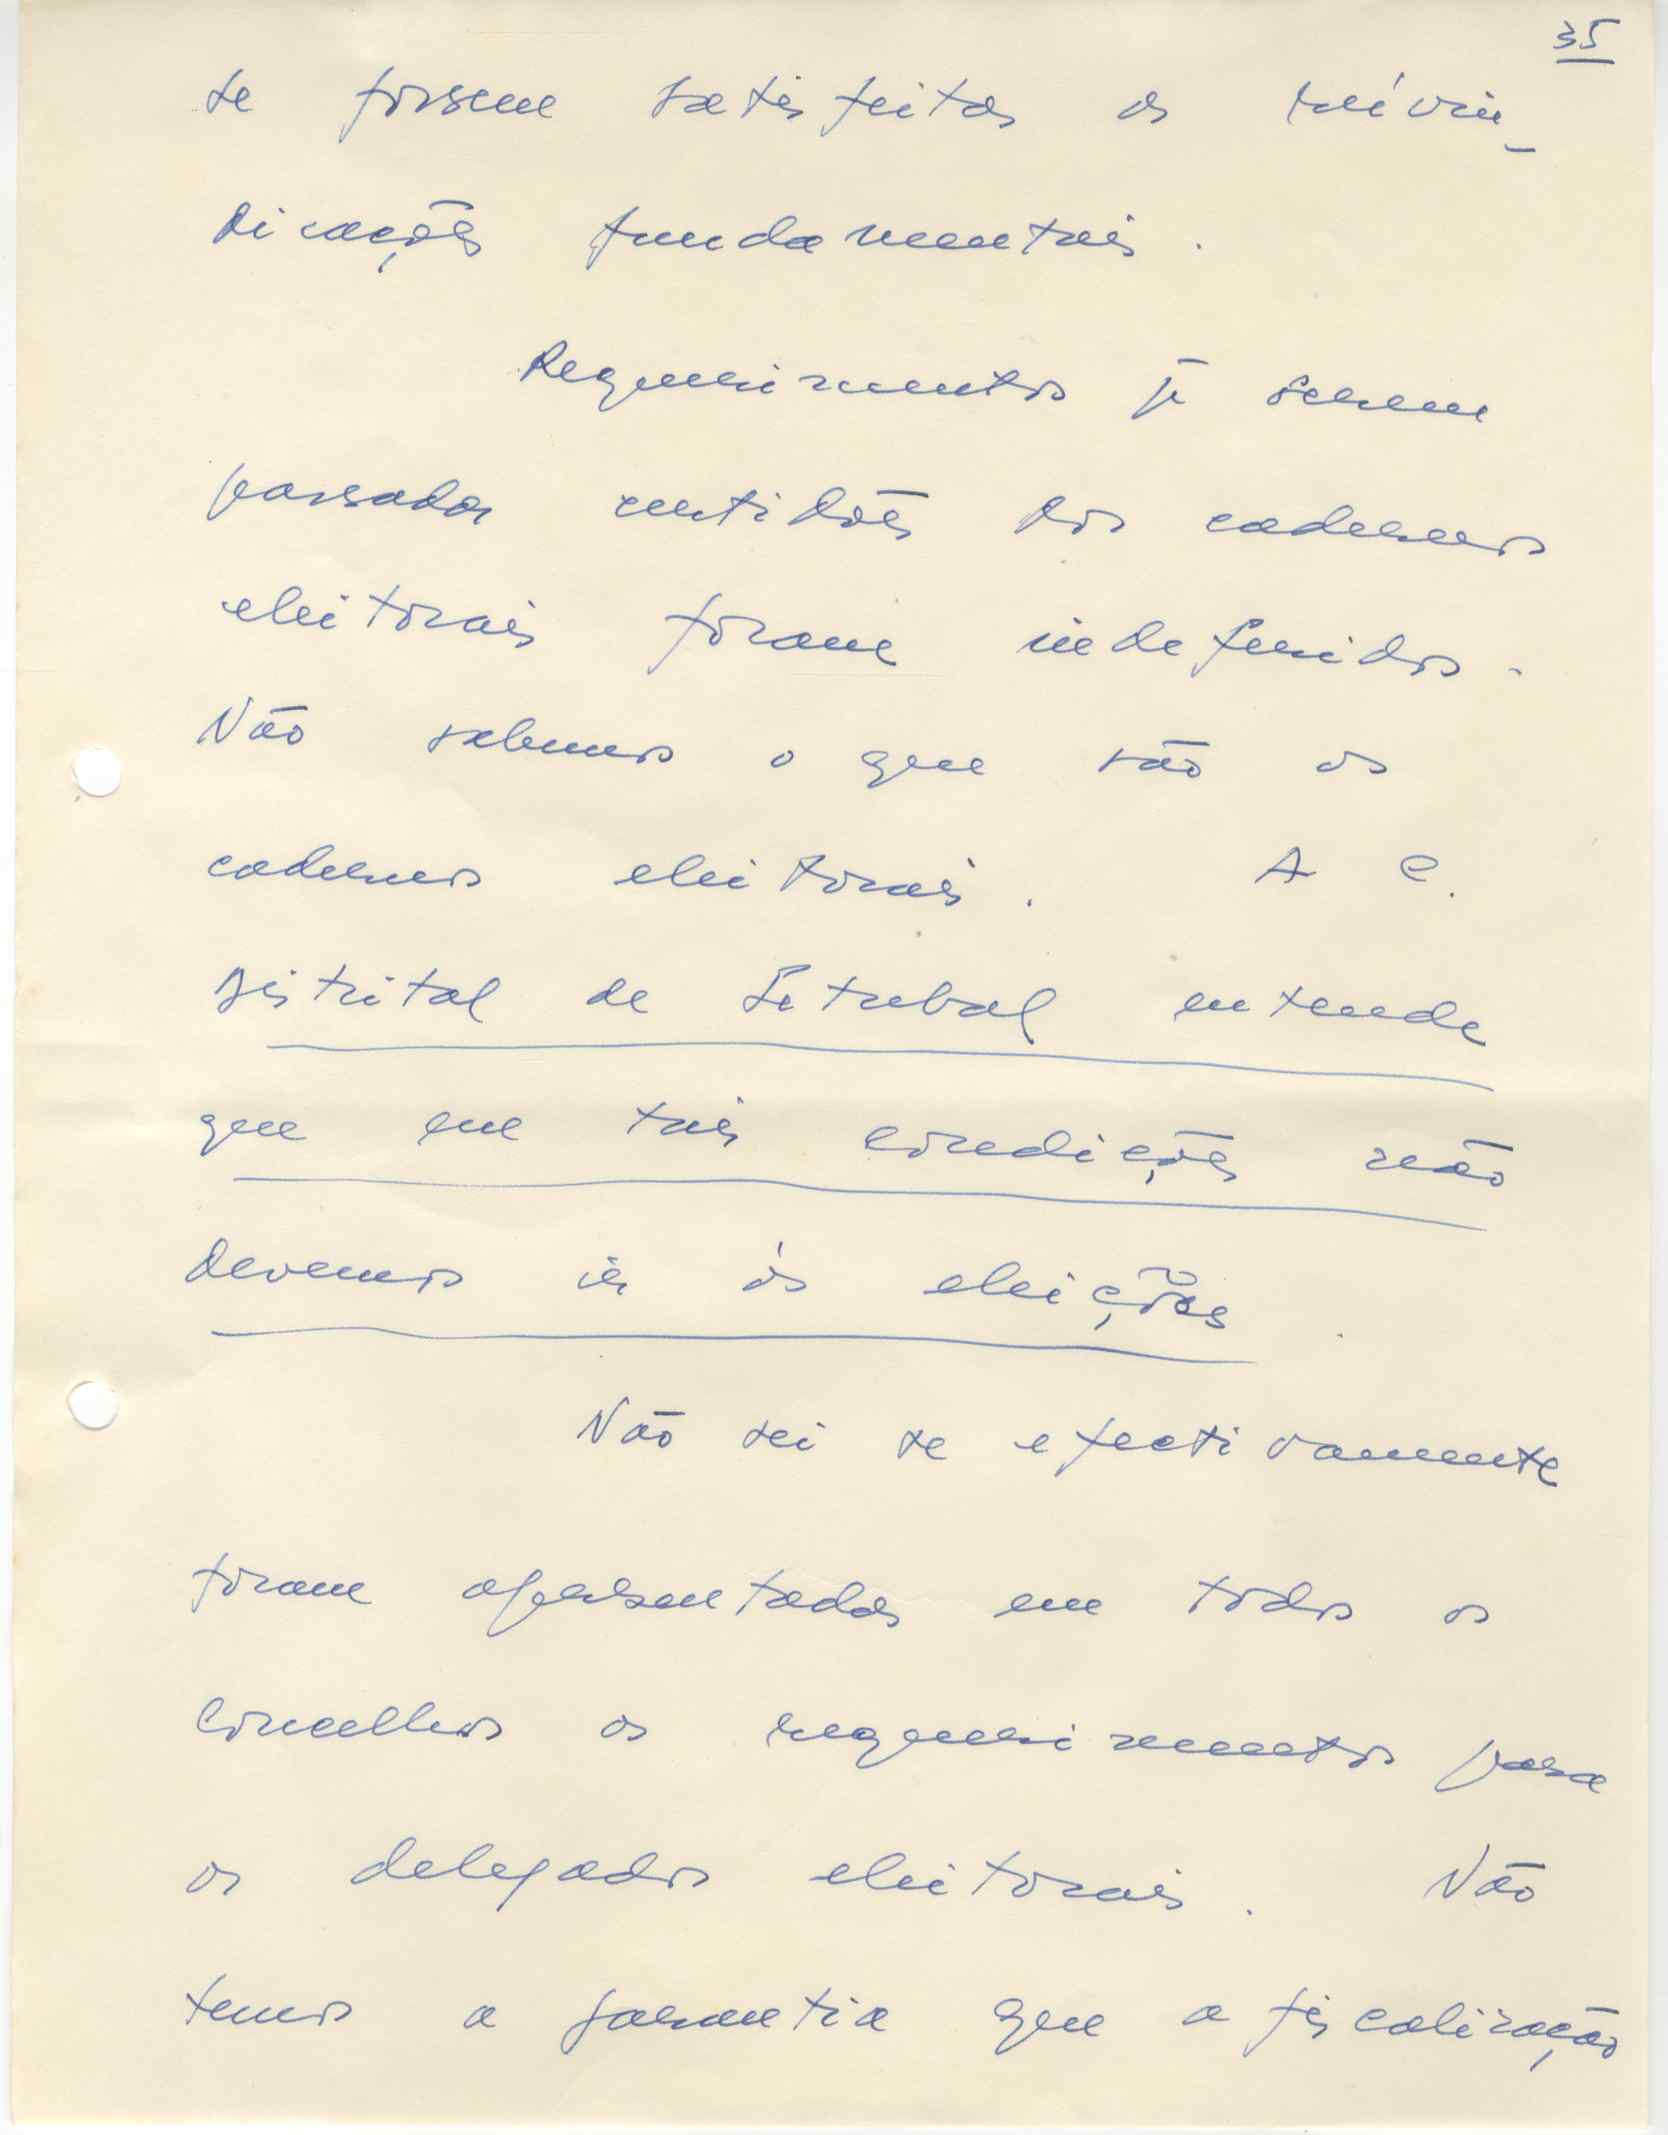 35
se fossem satisfeitas as reivin-
dicações fundamentais.
Requerimentos p. serem
passadas certidões dos cadernos
eleitorais foram indeferidos.
Não sabemos o que são os
cadernos eleitorais. A C.
Distrital de Setubal entende
que em tais condições não
devemos ir às eleições.
Não sei se efectivamente
foram apresentados em todos os
concelhos os requerimentos para
os delegados eleitorais. Não
temos a garantia que a fiscalização